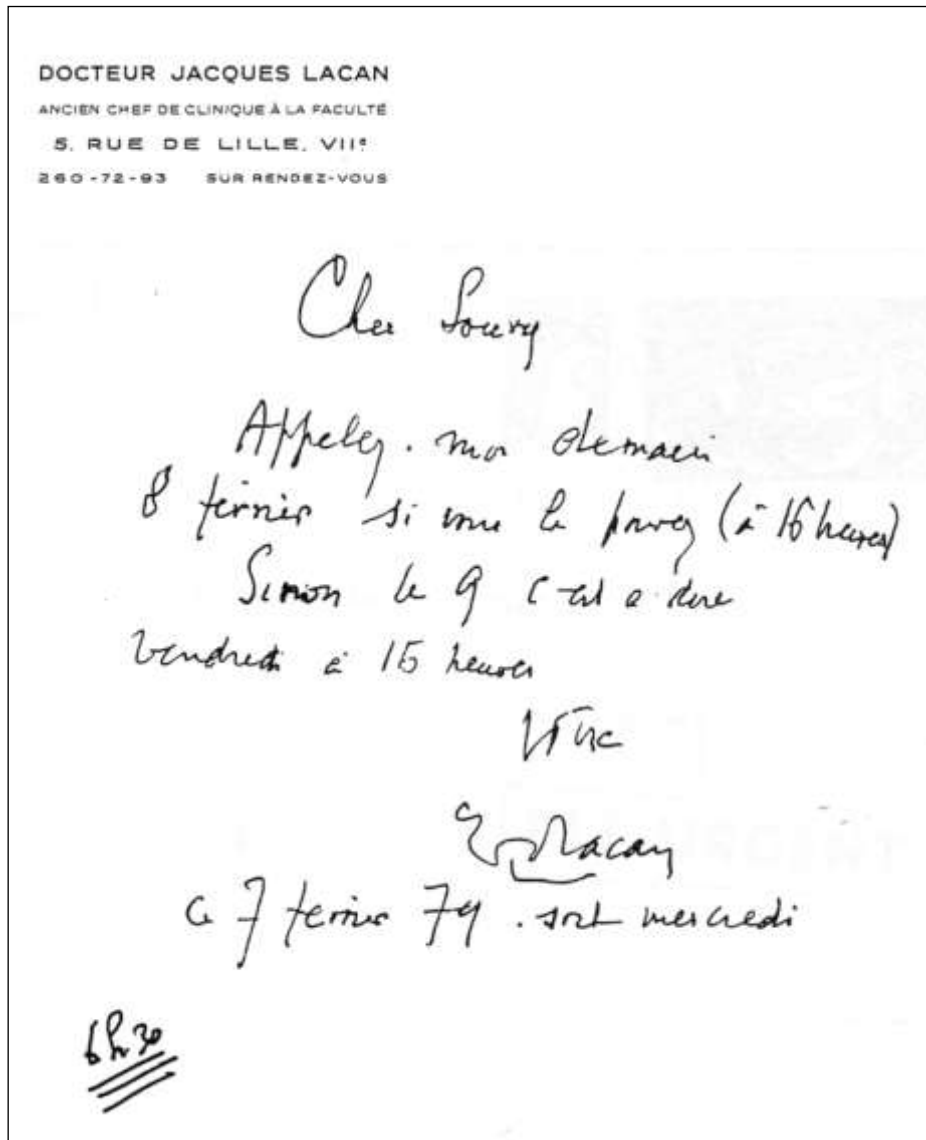 DOCTEUR JACQUES LACAN
ANCIEN CHEF DE CLINIQUE À LA FACULTÉ
5, RUE DE LILLE, VIIe
260-72-93 SUR RENDEZ-VOUS
Cher Soury
Appelez-moi demain
8 février si vous le pouvez (à 16 heures)
Sinon le 9 c'est a dire
vendredi à 16 heures
Vôtre
Lacan
Ce 7 février 79. soit mercredi
6h30